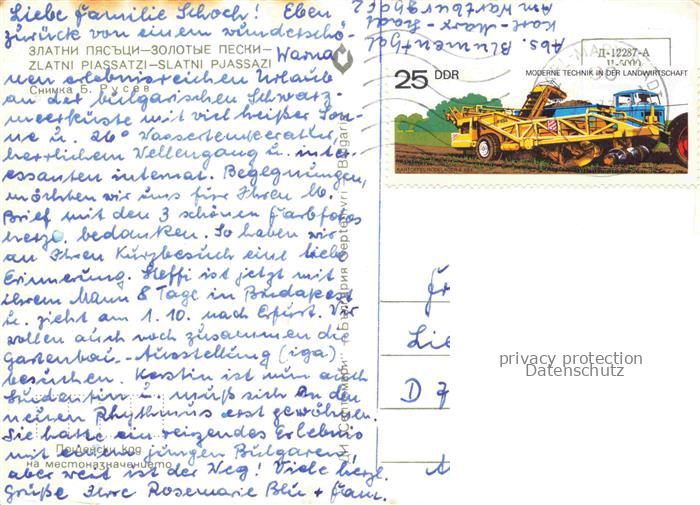 Liebe Familie Schoch! Eben
zurück von einem wunderschö-
ЗЛАТНИ ПЯСЪЦИ—ЗОЛОТЫЕ ПЕСКИ— Warna
ZLATNI PIASSATZI—SLATNI PJASSAZI
nen erlebnisreichen Urlaub
Снимка Б. Русев
an der bulgarischen Schwarz-
meerküste mit viel heißer Son-
ne u. 26° Wassertemperatur,
herrlichem Wellengang u. inter-
essanten internat. Begegnungen,
möchten wir uns für Ihren lb.
Brief mit den 3 schönen Farbfotos
herzl. bedanken. So haben wir
an Ihren Kurzbesuch eine liebe
Erinnerung. Steffi ist jetzt mit
ihrem Mann 8 Tage in Budapest
u. zieht am 1.10. nach Erfurt. Wir
wollen auch noch zusammen die
Gartenbau-Ausstellung (iga)
besuchen. Kerstin ist nun auch
Studentin u. muß sich an den
neuen Rhythmus erst gewöhnen.
Sie hatte ein reizendes Erlebnis
Пощенски код
mit einem jungen Bulgaren,
на местоназначението
aber weit ist der Weg! Viele herzl.
Grüße Ihre Rosemarie Blü + Fam.
Abs. Blumenthal
Karl-Marx-Stadt
Am Wartburghof 2
Д-12287-А
25 DDR
MODERNE TECHNIK IN DER LANDWIRTSCHAFT
ДИ „Септември" — България Septemvri — Bulgaria
Lie
D 7
privacy protection
Datenschutz